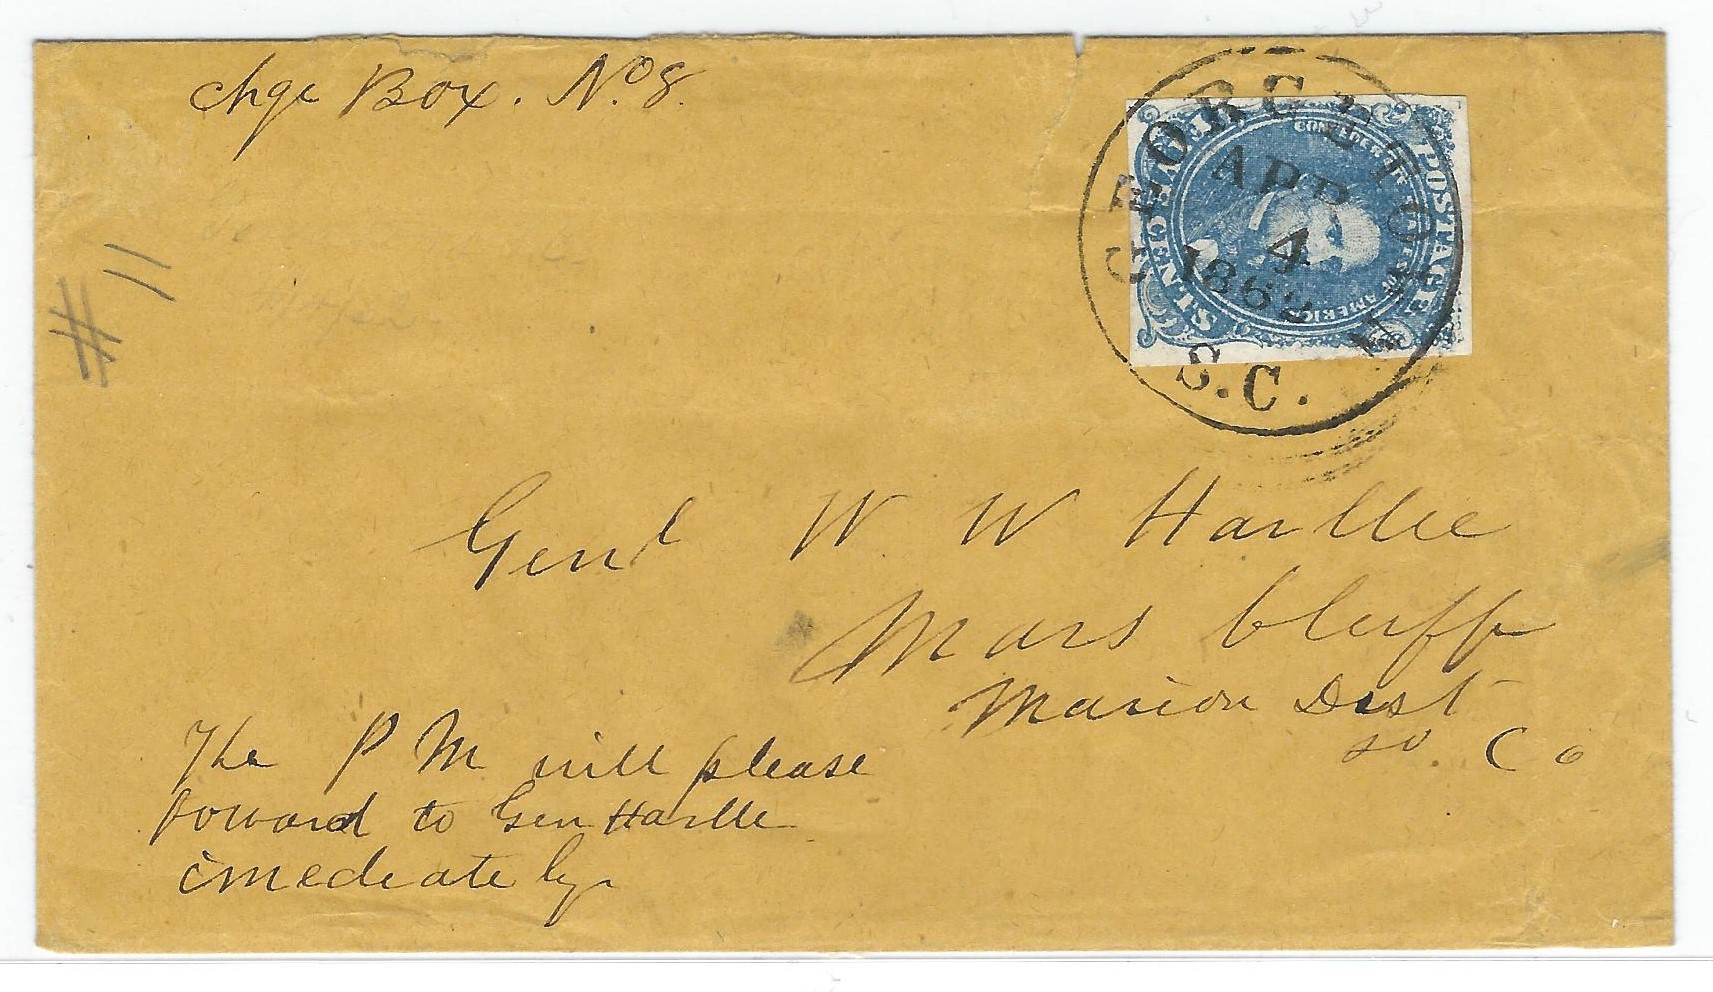 chge Box. No 8.
# 11
GEORGETOWN
APR
4
1862
S.C.
POSTAGE
CONFEDERATE STATES OF AMERICA
FIVE CENTS
Genl W W Harllee
Mars bluff
Marion Dist
So. Ca
The P M will please
foward to Gen Harlle
imediately